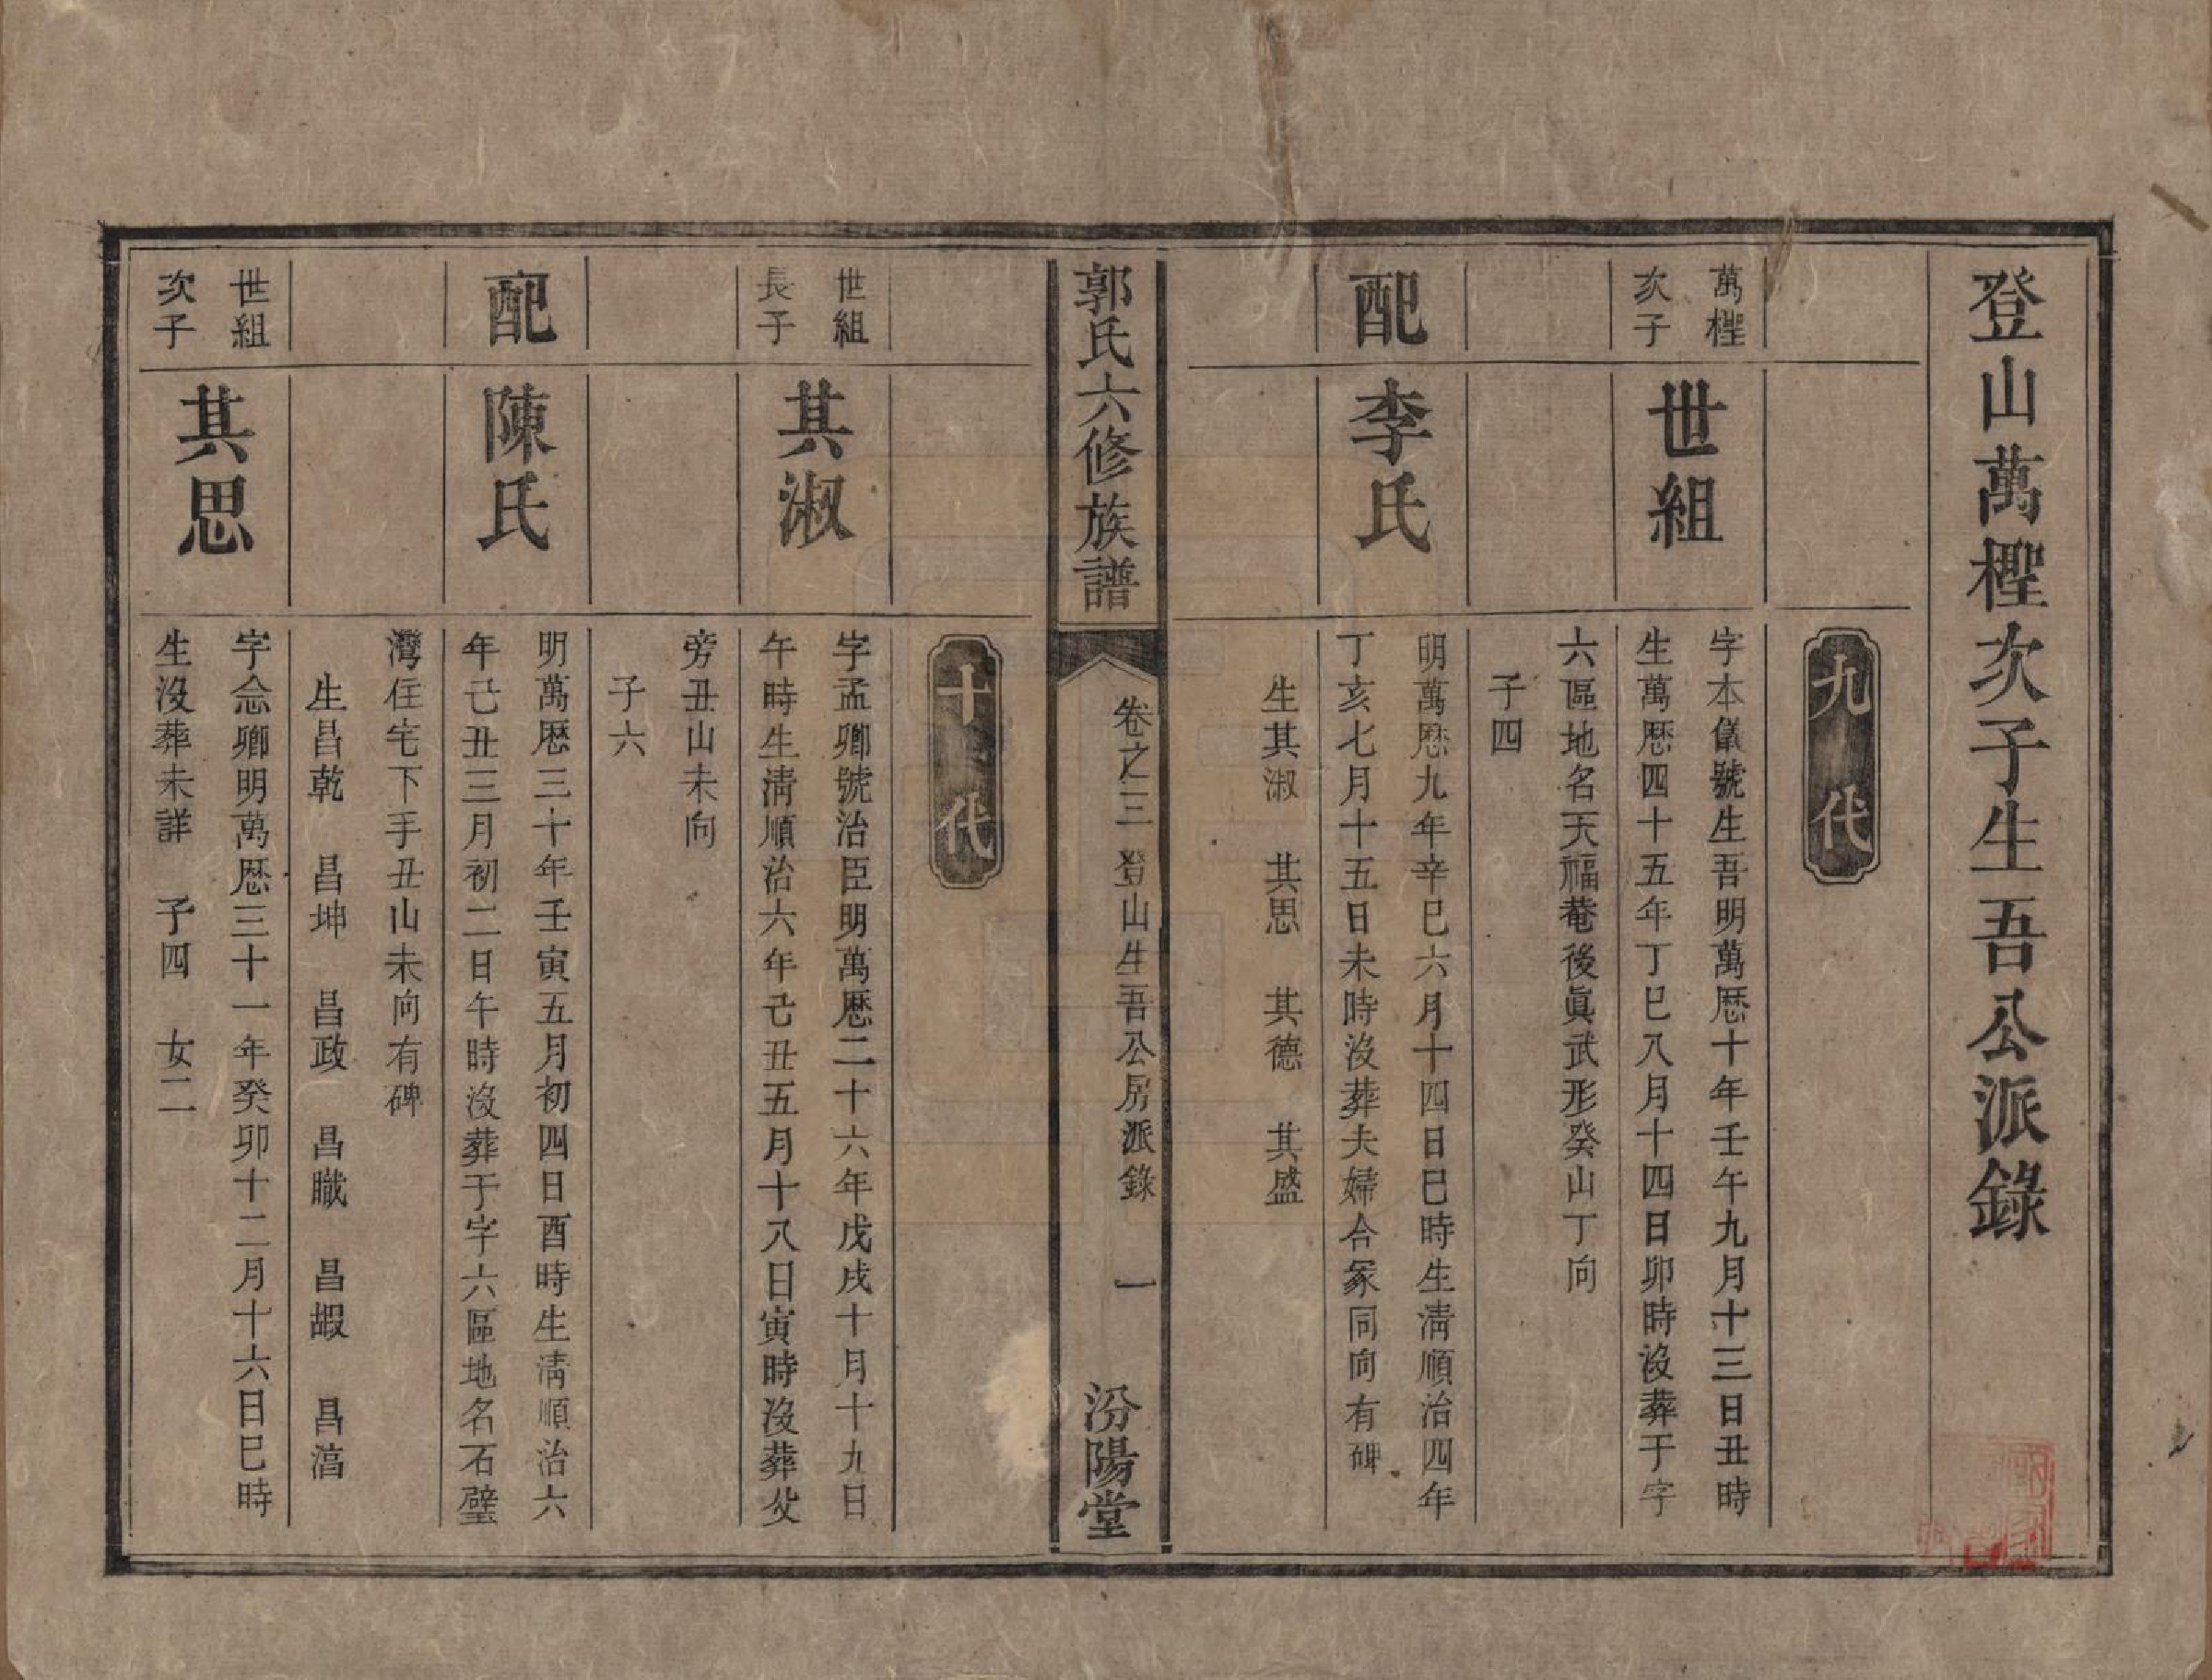 登山萬檉次子生吾公派錄
九代
萬檉
次子
世組
字本儀號生吾明萬厯十年壬午九月十三日丑時
生萬厯四十五年丁巳八月十四日卯時沒葬于字
六區地名天福菴後眞武形癸山丁向
子四
配
李氏
明萬厯九年辛巳六月十四日巳時生淸順治四年
丁亥七月十五日未時沒葬夫婦合冢同向有碑
生其淑 其思 其德 其盛
郭氏六修族譜
卷之三 登山生吾公房派錄
一
汾陽堂
十代
世組
長子
其淑
字孟卿號治臣明萬厯二十六年戊戌十月十九日
午時生淸順治六年己丑五月十八日寅時沒葬父
旁丑山未向
子六
配
陳氏
明萬厯三十年壬寅五月初四日酉時生淸順治六
年己丑三月初二日午時沒葬于字六區地名石璧
灣住宅下手丑山未向有碑
生昌乾 昌坤 昌政 昌職 昌嘏 昌滈
世組
次子
其思
字念卿明萬厯三十一年癸卯十二月十六日巳時
生沒葬未詳 子四 女二